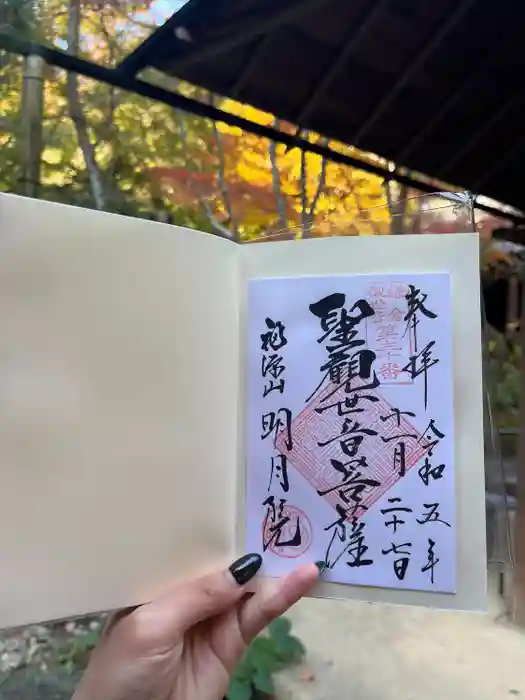 奉拝
令和五年
十一月二十七日
聖観世音菩薩
福源山
明月院
第三十番